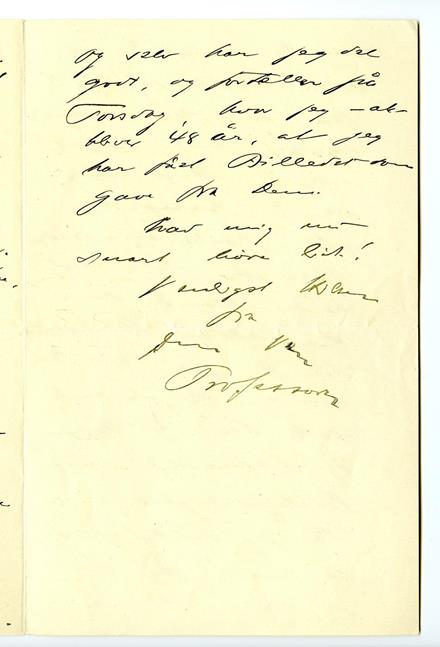 og selv har jeg det
godt, og fortæller på
Torsdag, hvor jeg – ak –
bliver 48 år, at jeg
har fået Billedet som
Gave fra Dem.
Lad mig nu
snart høre lidt!
Venligst Hilsen
fra
Deres Ven
Professoren